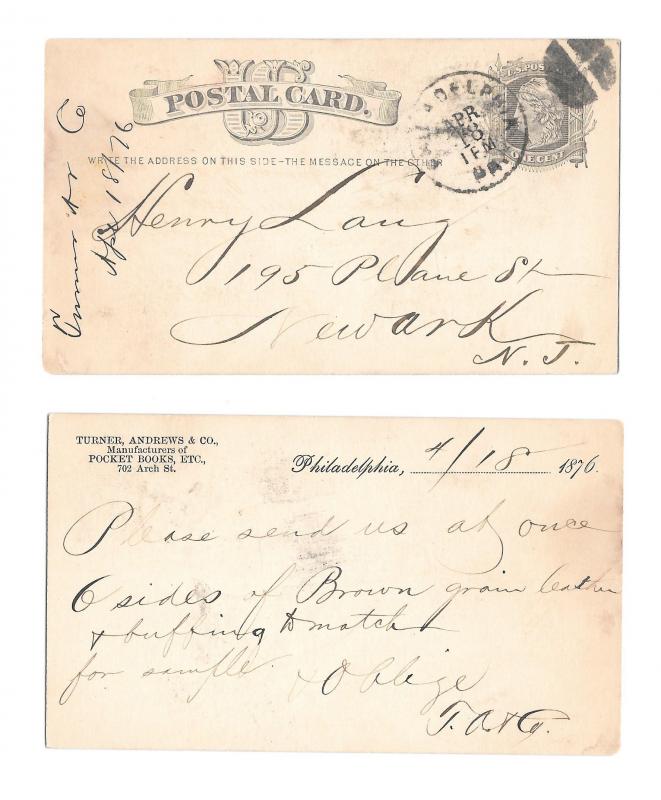 US
POSTAL CARD.
WRITE THE ADDRESS ON THIS SIDE-THE MESSAGE ON THE OTHER
U.S. POST
ONE CENT
PHILADELPHIA
APR
18
1 PM
PA
Co
Apl 18/76
Henry Lang
195 Plane St
Newark
N. J.
TURNER, ANDREWS & CO.,
Manufacturers of
POCKET BOOKS, ETC.,
702 Arch St.
Philadelphia, 4/18 1876.
Please send us at once
6 sides of Brown grain leather
& buffing to match
for sample & Oblige
T. A & Co.